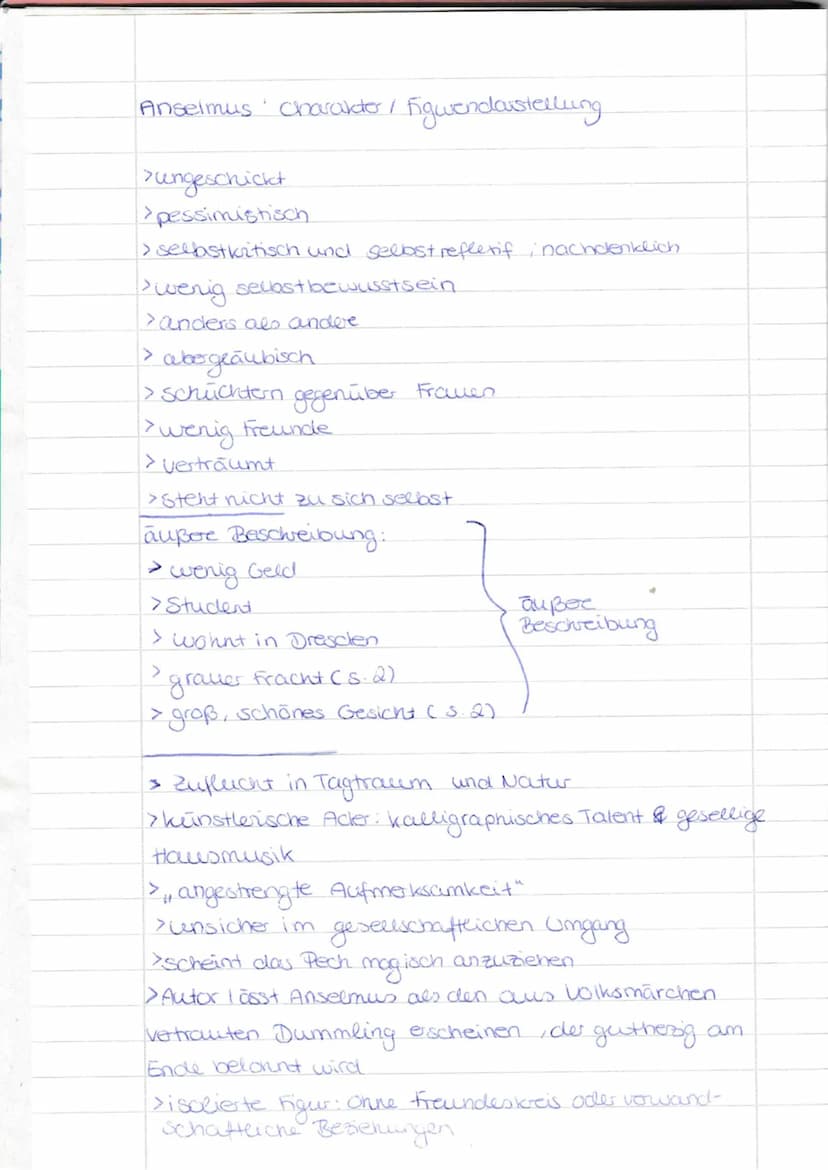 Anselmus' Charakter / Figurendarstellung
> ungeschickt
> pessimistisch
> selbstkritisch und selbstreflexif, nachdenklich
> wenig selbstbewusstsein
> anders als andere
> abergläubisch
> schüchtern gegenüber Frauen
> wenig Freunde
> verträumt
> steht nicht zu sich selbst
äußere Beschreibung:
> wenig Geld
> Student
> wohnt in Dresden
> grauer Fracht (S. 2)
> groß, schönes Gesicht (S. 2)
äußere
Beschreibung
> Zuflucht in Tagtraum und Natur
> künstlerische Ader: kalligraphisches Talent & gesellige
Hausmusik
> „angestrengte Aufmerksamkeit"
> unsicher im gesellschaftlichen Umgang
> scheint das Pech magisch anzuziehen
> Autor lässt Anselmus als den aus Volksmärchen
vertrauten Dummling erscheinen, der gutherzig am
Ende belohnt wird
> isolierte Figur: ohne Freundeskreis oder verwand-
schaftliche Beziehungen